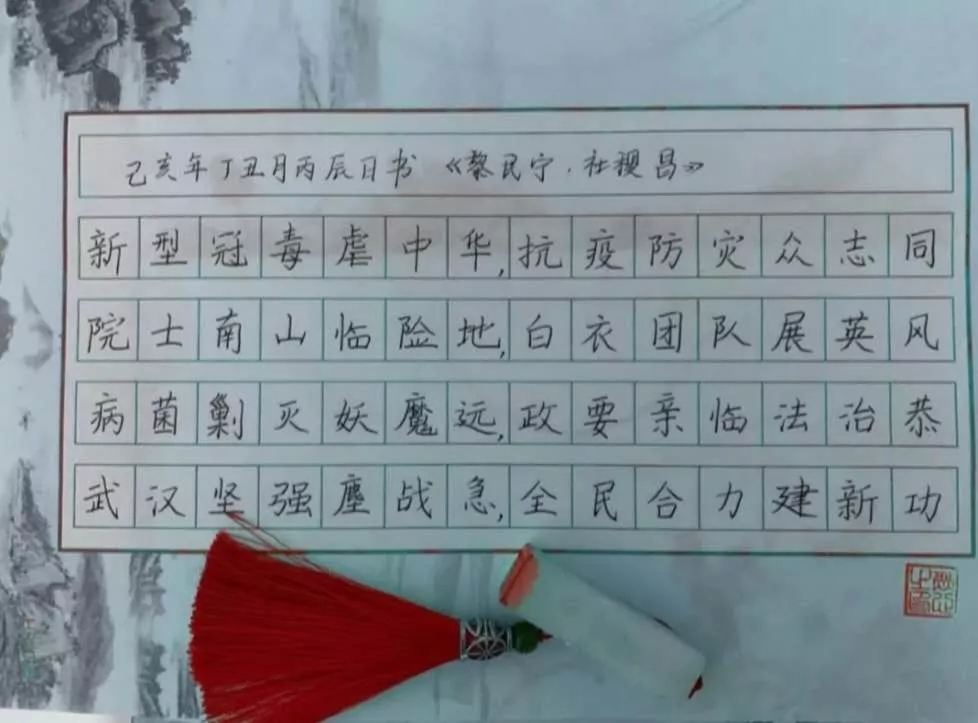 己亥年丁丑月丙辰日书《黎民宁·社稷昌》
新型冠毒虐中华,抗疫防灾众志同
院士南山临险地,白衣团队展英风
病菌剿灭妖魔远,政要亲临法治恭
武汉坚强鏖战急,全民合力建新功